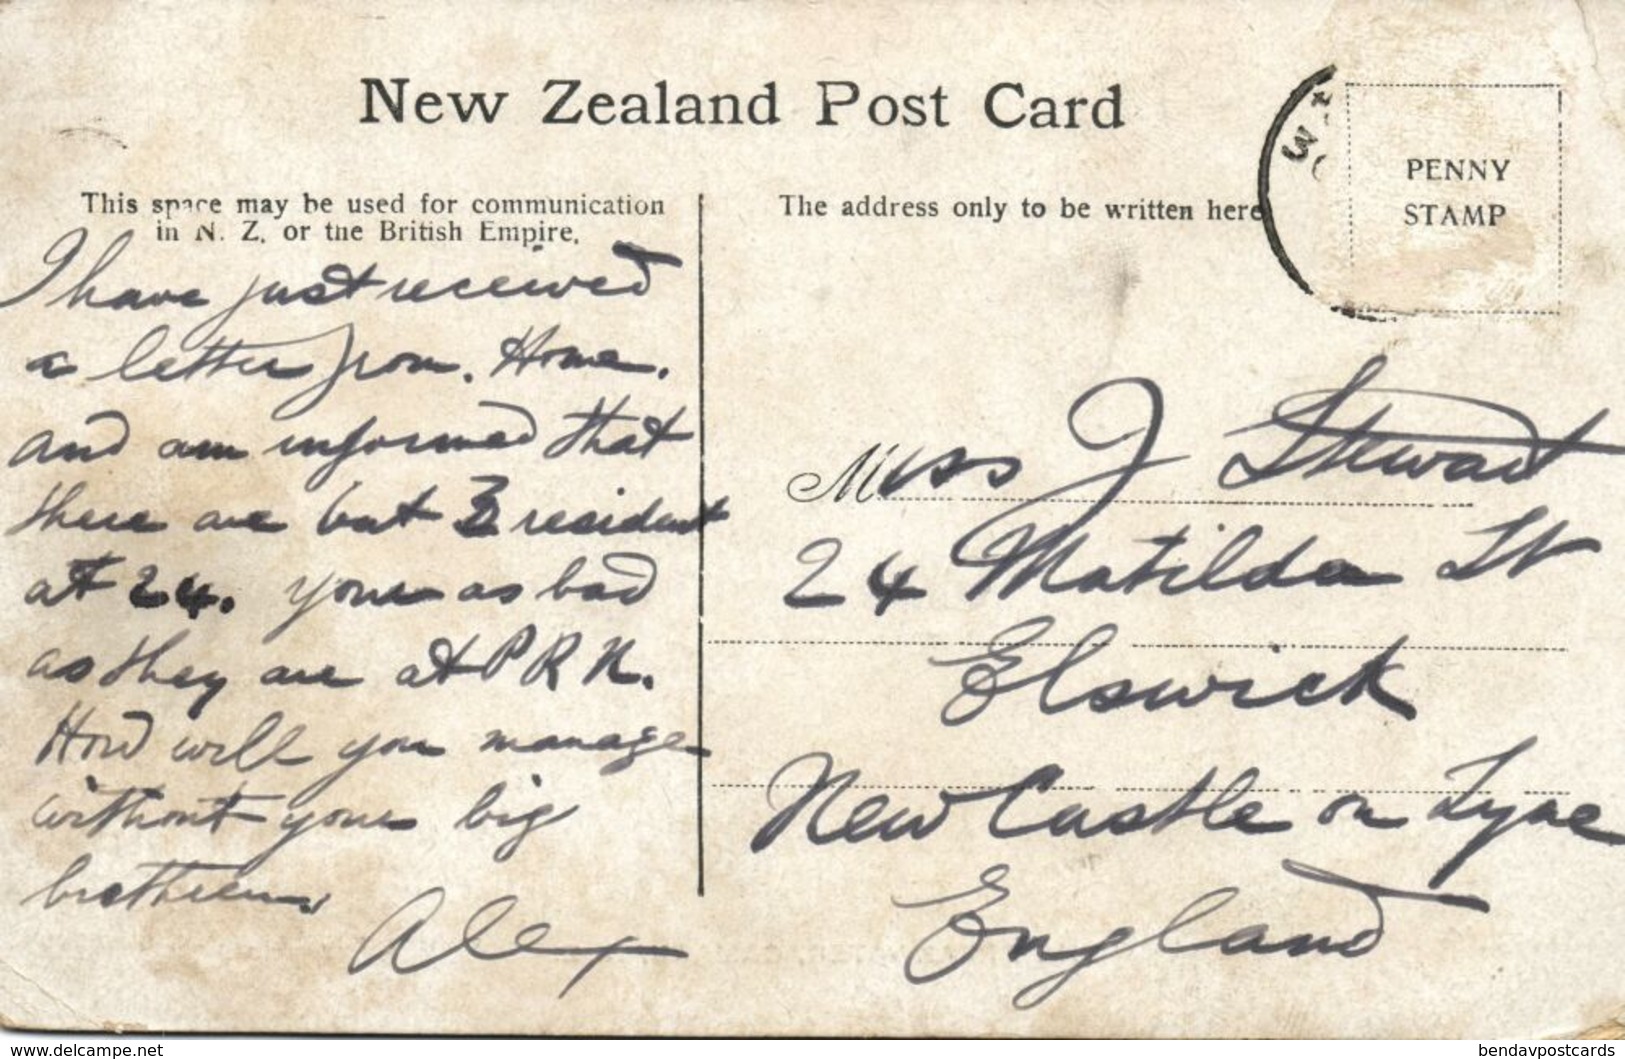 New Zealand Post Card
PENNY
STAMP
This space may be used for communication
in N. Z. or the British Empire.
The address only to be written here
I have just received
a letter from. Home.
and am informed that
there are but 3 resident
at 24. your as bad
as they are at P R N.
How will you manage
without your big
brothers.
Alex
Miss J Stewart
24 Matilda St
Elswick
New Castle on Tyne
England
www.delcampe.net
bendavpostcards